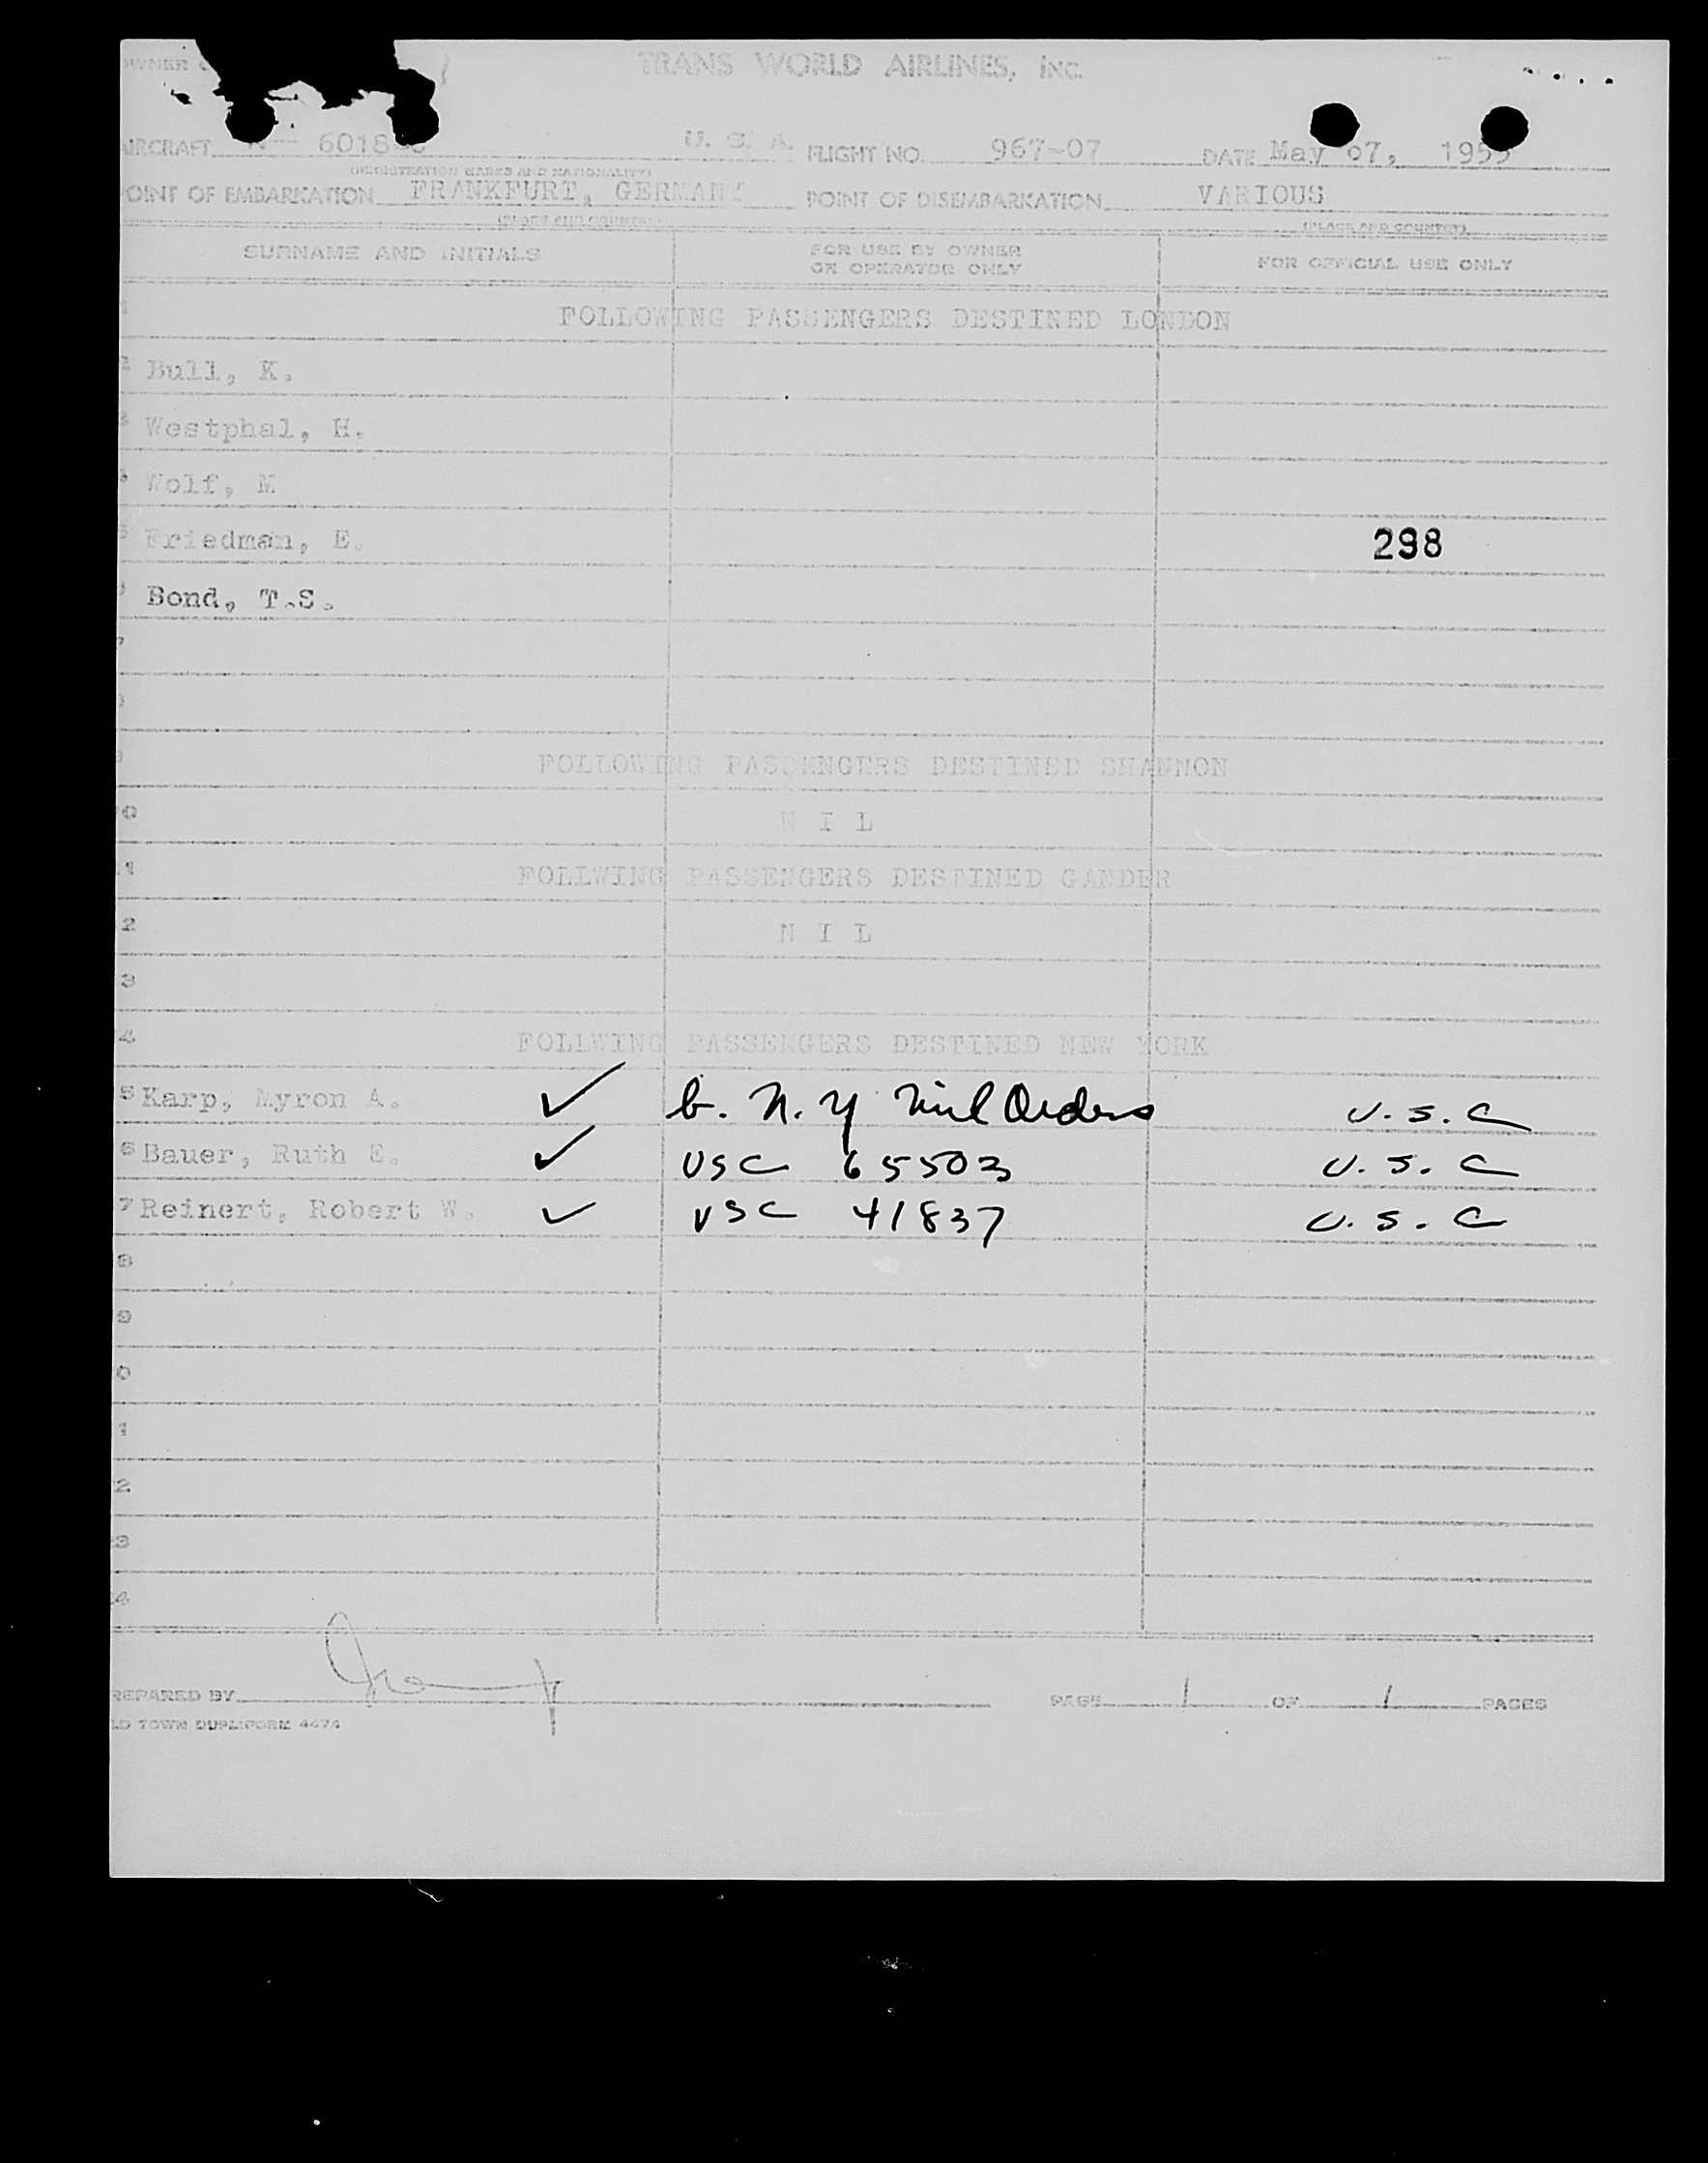 OWNER
TRANS WORLD AIRLINES, INC.
AIRCRAFT N 6018 U. S. A. FLIGHT NO. 967-07 DATE May 07, 1955
(REGISTRATION MARKS AND NATIONALITY)
POINT OF EMBARKATION FRANKFURT, GERMANY POINT OF DISEMBARKATION VARIOUS
(PLACE AND COUNTRY) (PLACE AND COUNTRY)
SURNAME AND INITIALS FOR USE BY OWNER OR OPERATOR ONLY FOR OFFICIAL USE ONLY
1 FOLLOWING PASSENGERS DESTINED LONDON
2 Bull, K.
3 Westphal, H.
4 Wolf, M
5 Friedman, E. 298
Bond, T.S.
7
FOLLOWING PASSENGERS DESTINED SHANNON
0 N I L
1 FOLLWING PASSENGERS DESTINED GANDER
2 N I L
3
4 FOLLWING PASSENGERS DESTINED NEW YORK
5 Karp, Myron A. ✓ b. N. Y Mil Orders U.S.C
6 Bauer, Ruth E. ✓ USC 65503 U.S.C
7 Reinert, Robert W. ✓ USC 41837 U.S.C
8
9
0
1
2
3
4
REPARED BY PAGE 1 OF 1 PAGES
LD TOWN DUPLIFORM 4474